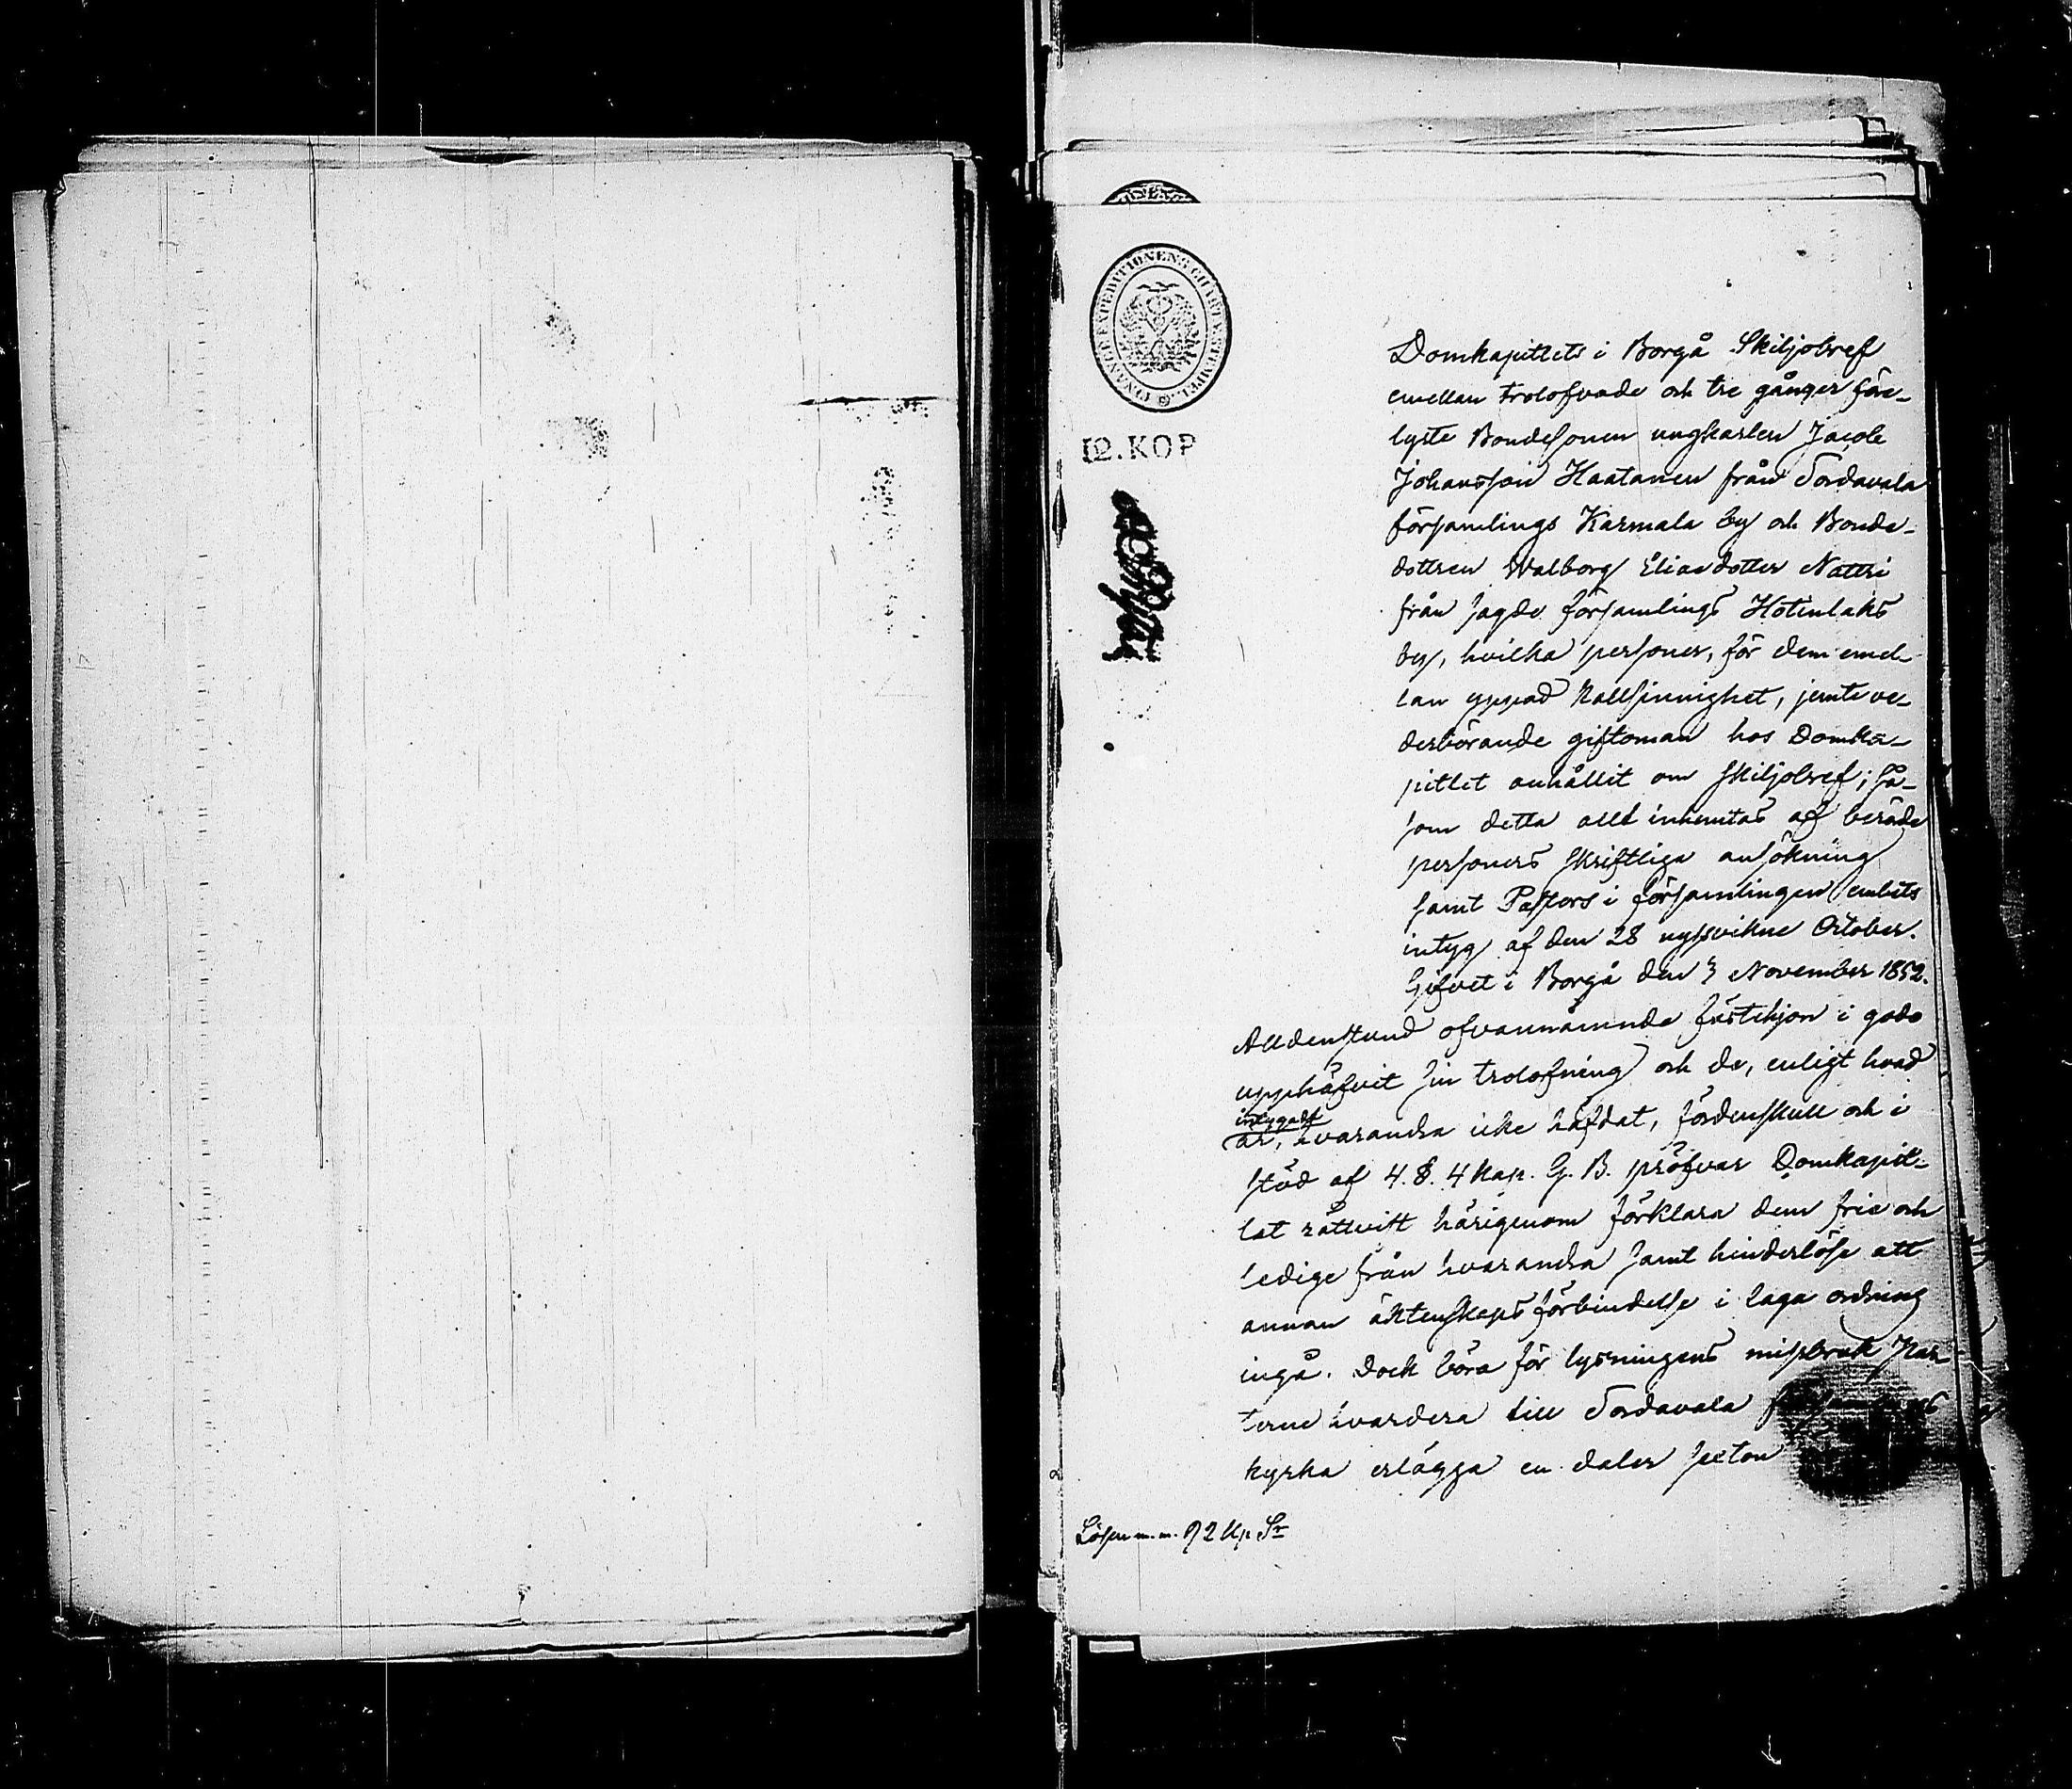 FINANCE EXPEDITIONENS CHARTÆ STEMPEL.
12. KOP
Domkapitlets i Borgå Skiljobref
emellan trolofvade och tre gånger före-
lyste Bondesonen ungkarlen Jacob
Johansson Haatanen från Sordavala
församlings Karmala by och Bonde-
dottren Walborg Eliasdotter Nättri
från sagde församlings Hotinlaks
by, hvilka personer, för dem emel-
lan yppad kallsinnighet, jemte ve-
derbörande giftoman hos Domka-
pitlet anhållit om skiljobref; så-
som detta allt inhemtas af berörde
personers skriftliga ansökning
samt Pastors i församlingen embets
intyg af den 28 nyssvikne October.
Gifvet i Borgå den 3 November 1852.
Alldenstund ofvannämnde fästehjon i godo
upphäfvit sin trolofning och de, enligt hvad
intygadt
är, hvarandra icke häfdat, fördenskull och i
stöd af 4. §. 4 Kap. G. B. pröfvar Domkapit-
let rättvist härigenom förklara dem frie och
ledige från hvarandra samt hinderlöse att
annan äktenskapsförbindelse i laga ordning
ingå. Dock böra för lysningens missbruk Par-
terne hvardera till Sordavala församlings
kyrka erlägga en daler sexton
Lösen m. m. 92 Kp. Sr